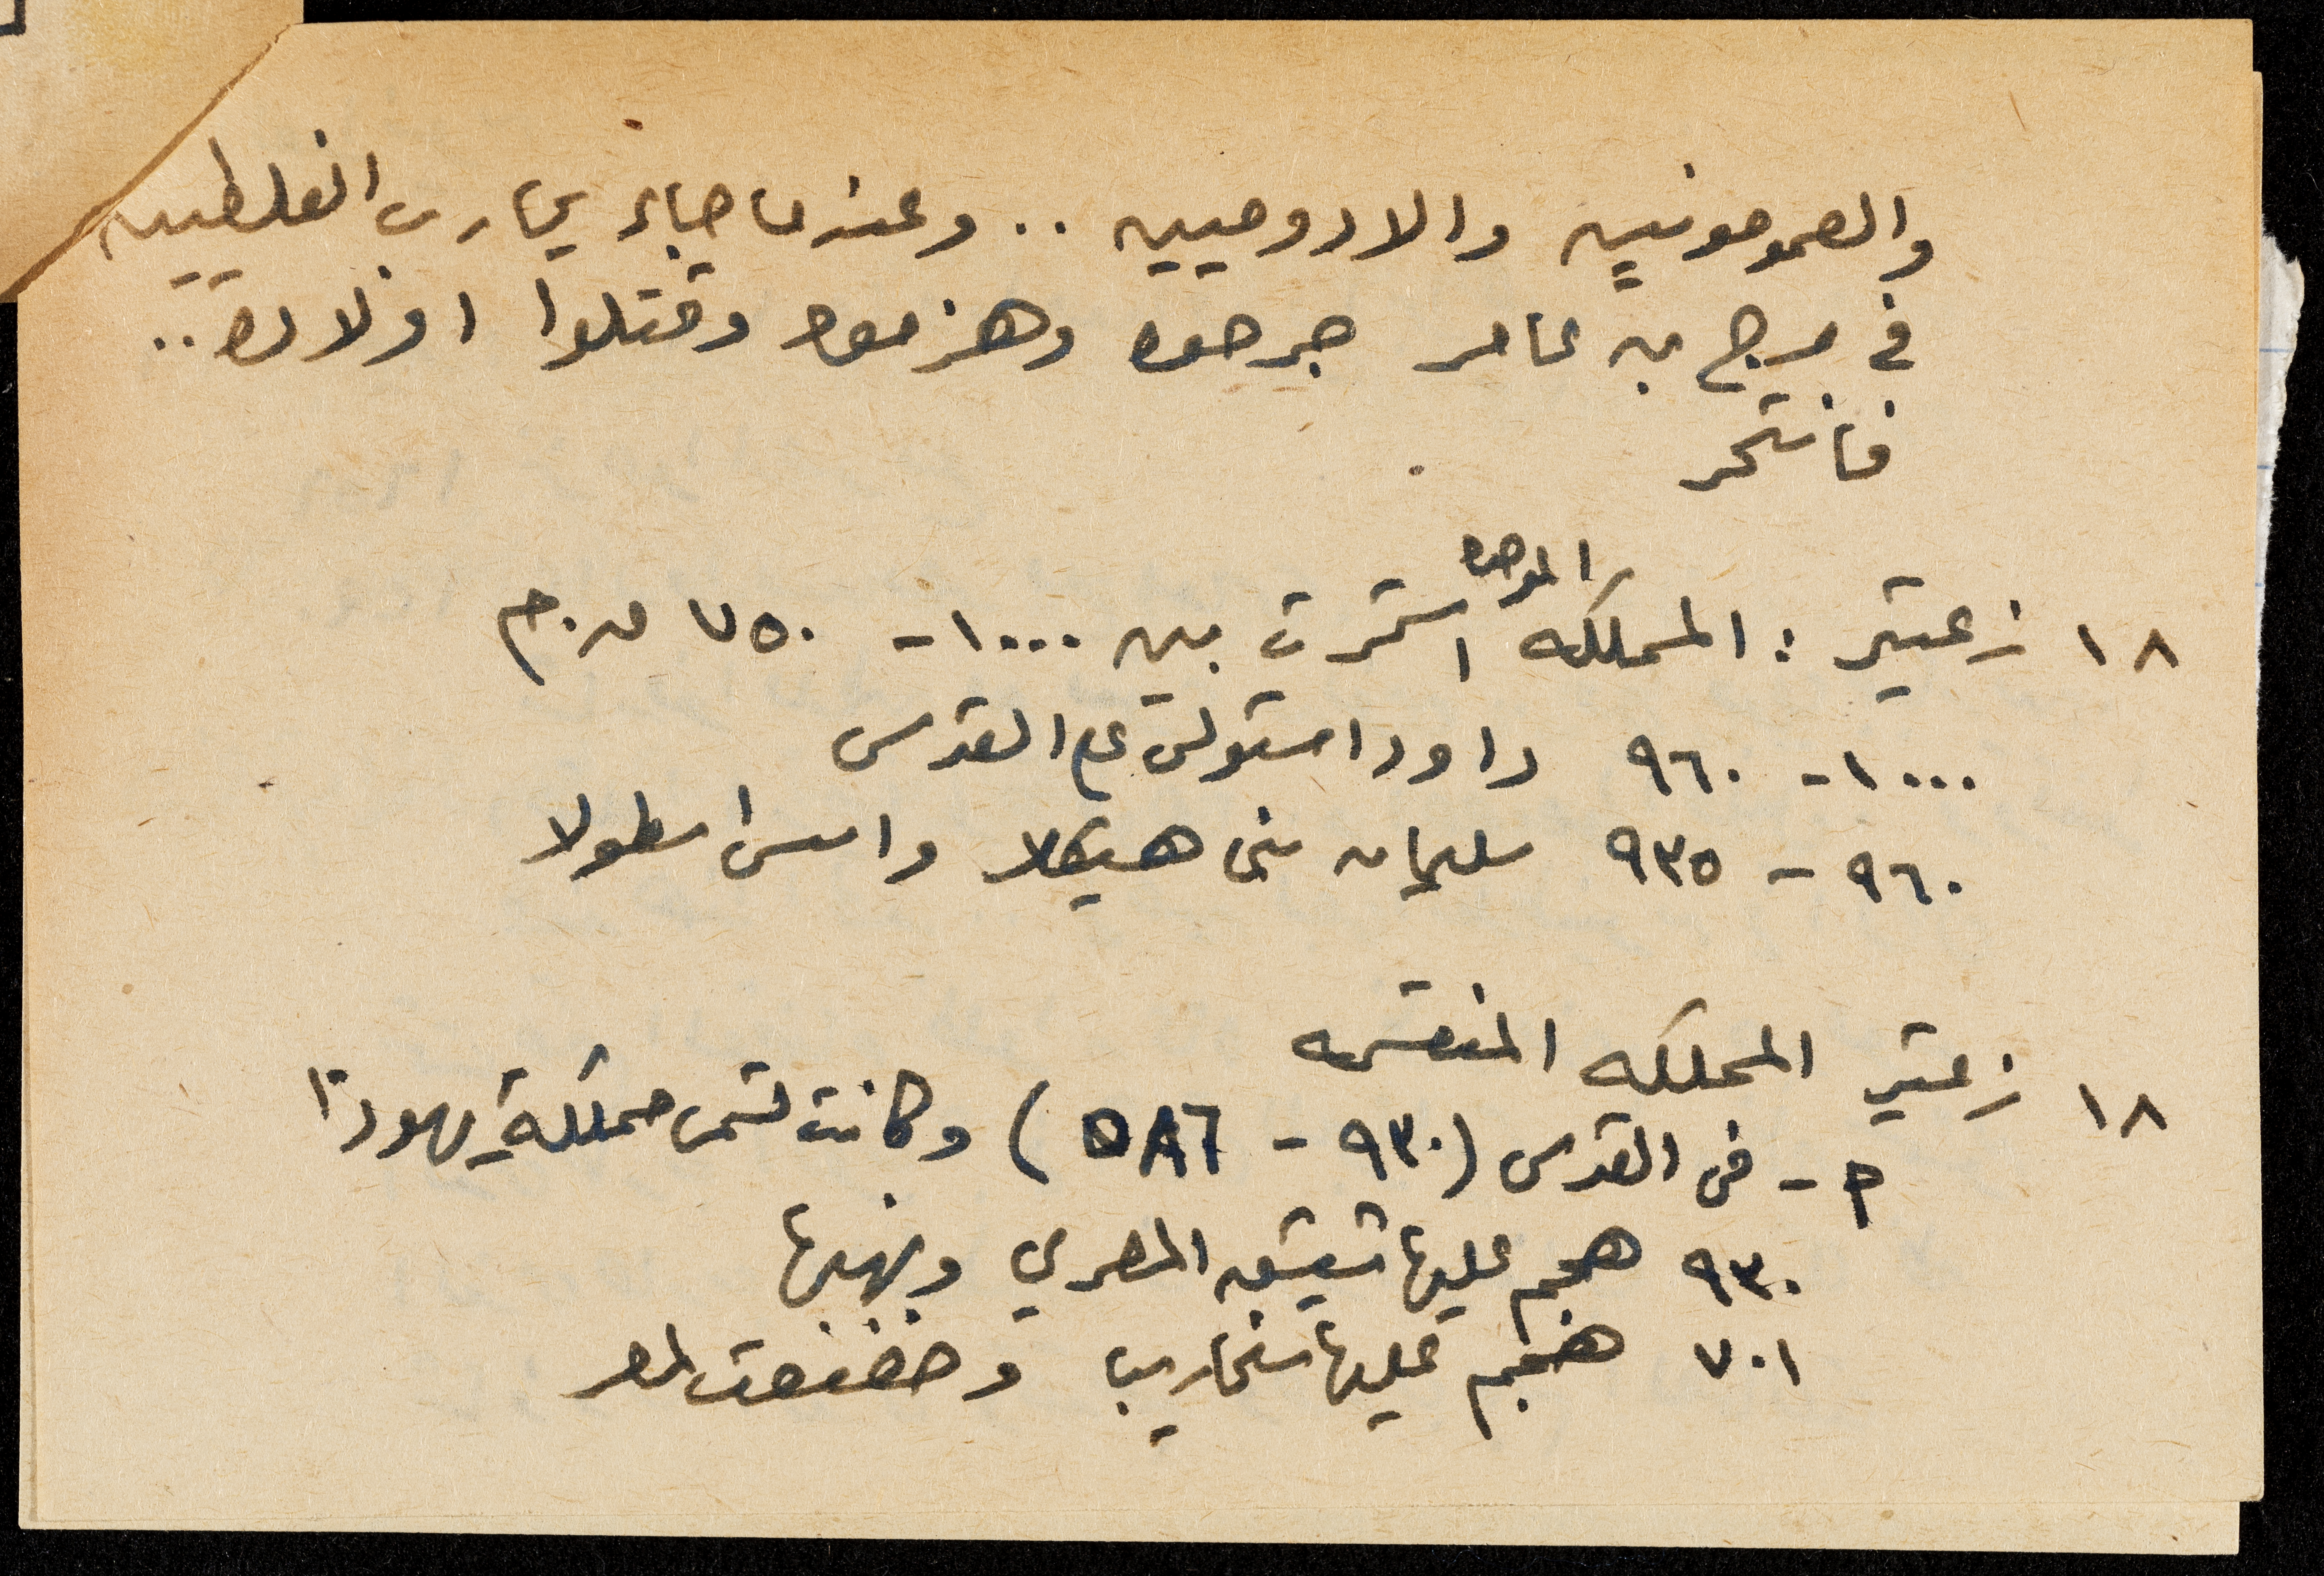 والعمونيين والادوميين .. وعندما جاء يحارب الفلسطيين
في مرج بن عامر جرحوه وهزموه وقتلوا اولاده ..
فانتحر
١٨ زعيتر : المملكه الموحده استمرت بين ١٠٠٠ - ٧٥٠ ق.م
١٠٠٠ - ٩٦٠ داود استولى على القدس
٩٦٠ - ٩٣٥ سليمان بنى هيكلا واسس اسطولا
١٨ زعيتر المملكه المنقسمه
٢ - في القدس (٩٣٠ - ٥٨٦) وكانت تسمى مملكة يهوذا
٩٣٠ هجم عليها شيشق المصري ونهبها
٧٠١ هجم عليها سنحاريب وخضعت لمصر